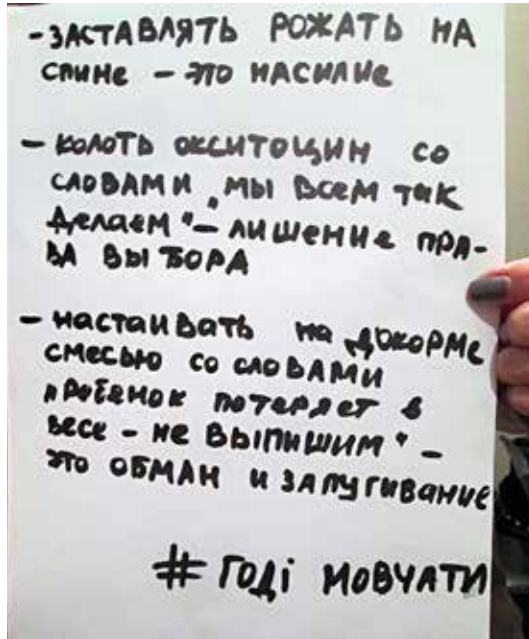 - ЗАСТАВЛЯТЬ РОЖАТЬ НА
СПИНЕ – ЭТО НАСИЛИЕ
- КОЛОТЬ ОКСИТОЦИН СО
СЛОВАМИ „МЫ ВСЕМ ТАК
ДЕЛАЕМ" – ЛИШЕНИЕ ПРА-
ВА ВЫБОРА
- НАСТАИВАТЬ НА ДОКОРМЕ
СМЕСЬЮ СО СЛОВАМИ
„РЕБЕНОК ПОТЕРЯЕТ В
ВЕСЕ – НЕ ВЫПИШИМ" –
ЭТО ОБМАН И ЗАПУГИВАНИЕ
# ГОДІ МОВЧАТИ